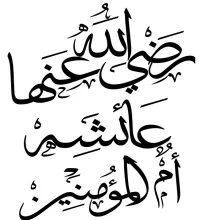 رَضِيَ اللّٰهُ عَنْهَا
عَائشہ
أُمُّ المُؤمنین